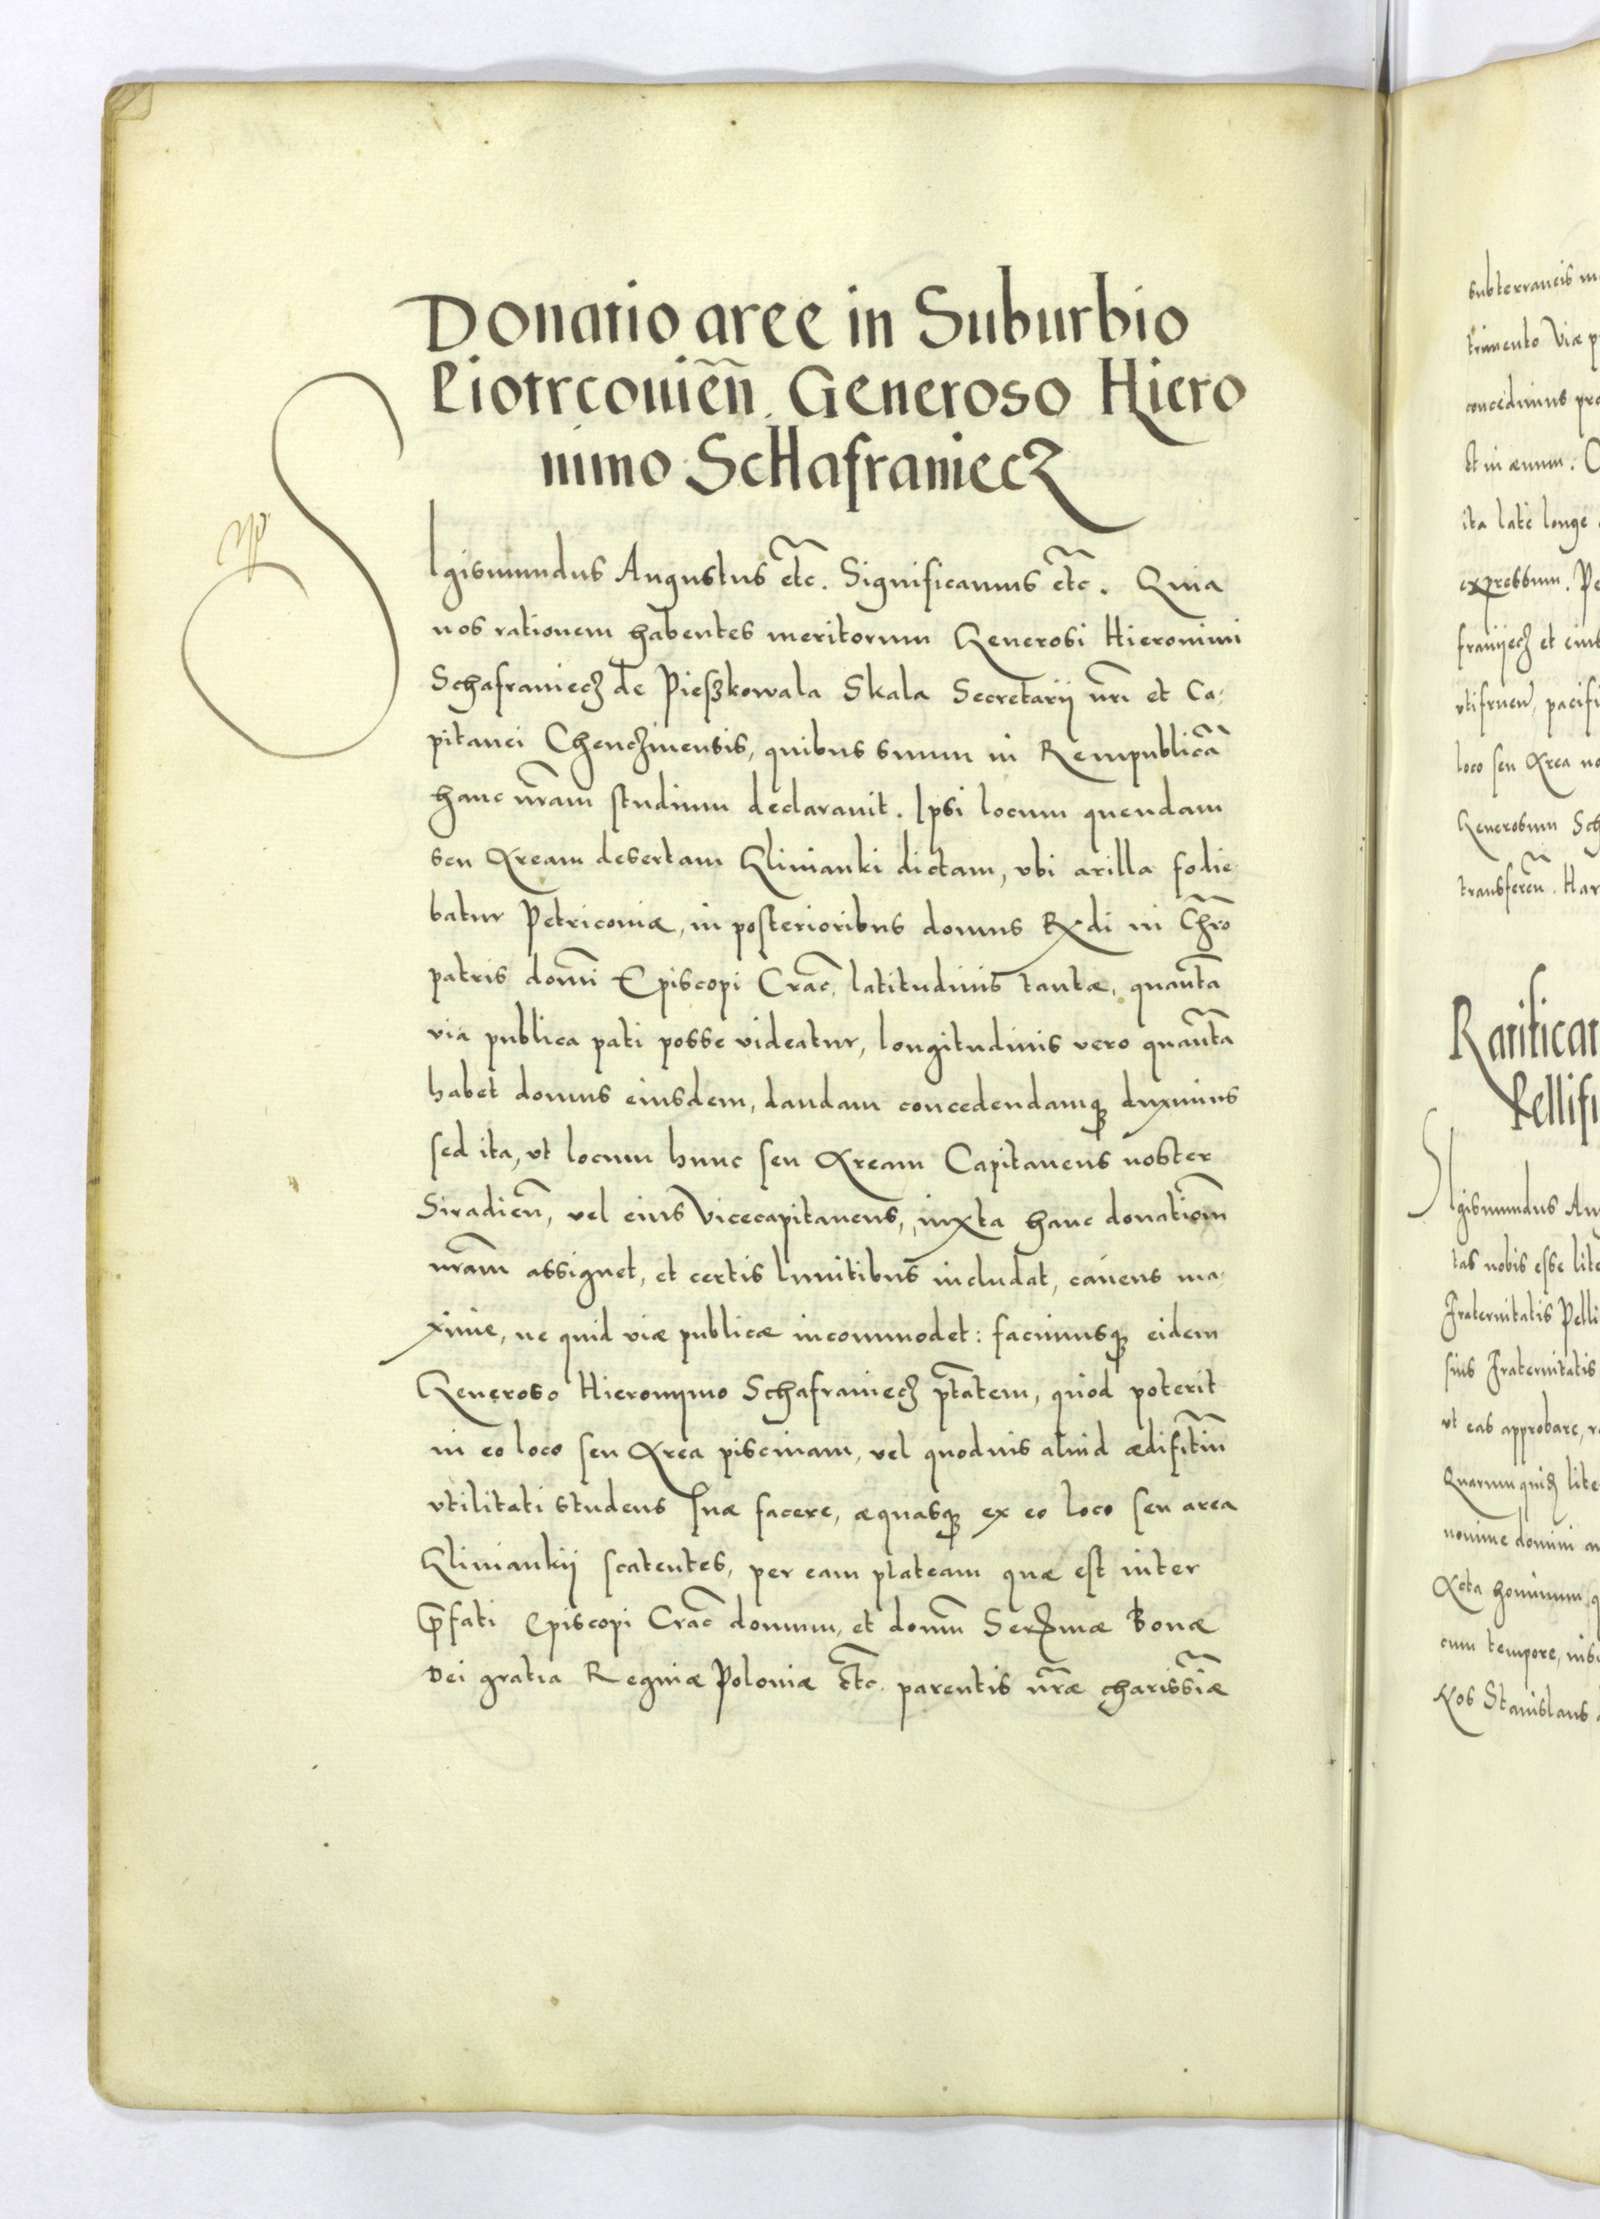 Donatio aree in Suburbio
Piotrcouień. Generoso Hiero
nimo Schafraniecz
Sigismundus Augustus etc. Significamus etc. Quia
nos rationem habentes meritorum Generosi Hieronimi
Schafraniecz de Pieszkowa Skala Secretarii nri et Ca-
pitanei Chenczinensis, quibus suum in Rempublicã
hanc nram studium declarauit. Ipsi locum quendam
seu Aream desertam Glinianki dictam, vbi arilla fodie
batur Petricouiæ, in posterioribus domus Rxdi in Chro
patris domi Episcopi Crac. latitudinis tantæ, quanta
via publica pati posse videatur, longitudinis vero quanta
habet domus eiusdem, dandam concedendamq duximus
sed ita, vt locum hunc seu Aream Capitaneus noster
Siradień, vel eius Vicecapitaneus, iuxta hanc donationm
nram assignet, et certis limitibus includat, cauens ma-
xime, ne quid viæ publicæ incommodet: facimusq eidem
Generoso Hieronymo Schafraniecz ptatem, quod poterit
in eo loco seu Area piscinam, vel quoduis aliud ædifitiu
vtilitati studens suæ facere, aquasq ex eo loco seu area
Gliniankii scatentes, per eam plateam quæ est inter
Pfati Episcopi Crac domum, et domu Serxmæ Bonæ
Dei gratia Reginæ Poloniæ etc. parentis nræ charissiæ
subterraneis
trimento Viæ
concedimus
et in æuum.
ita late longe
expressum.
franyecz et
vtifruen, 
loco seu Area
Generosum
transferen.
Sigismundus
tas nobis esse
Fraternitatis
suis Fraternitatis
vt eas approbare,
Quarum quidz
nomine domini
Acta hominum,
cum tempore,
Nos Stanislaus